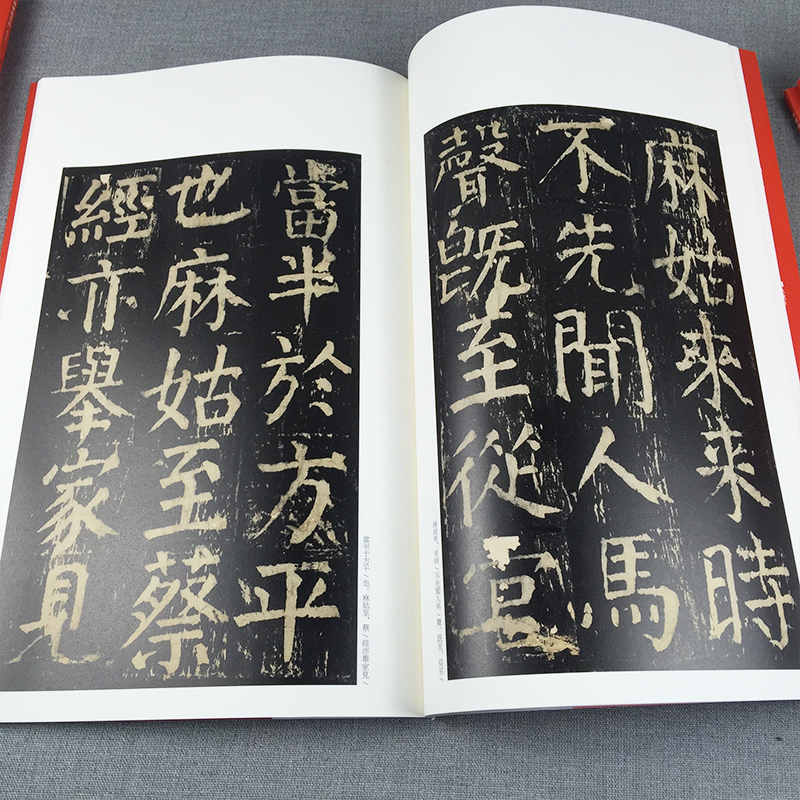 麻姑來來時
不先聞人馬
聲既至從官
麻姑來，來時／不先聞人馬／聲。既至，從官／
當半於方平
也麻姑至蔡
經亦舉家見
當半于方平／也。麻姑至，蔡／經亦舉家見／